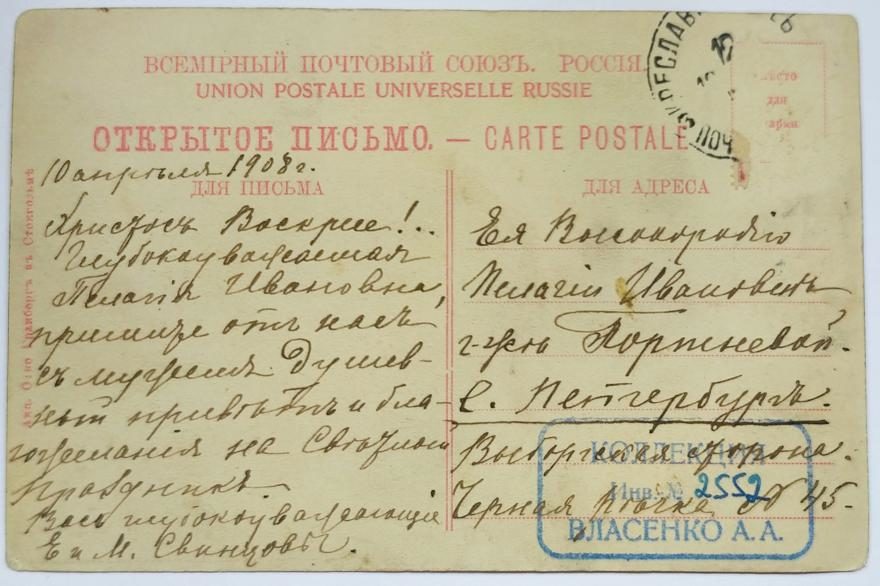 ВСЕМІРНЫЙ ПОЧТОВЫЙ СОЮЗЪ. РОССІЯ.
UNION POSTALE UNIVERSELLE RUSSIE
ОТКРЫТОЕ ПИСЬМО. — CARTE POSTALE
Мѣсто
для
марки
10 апрѣля 1908 г.
ДЛЯ ПИСЬМА
Христосъ Воскресе!..
Глубокоуважаемая
Пелагія Ивановна,
примите отъ насъ
съ мужемъ Душев-
ный привѣтъ и бла-
гожеланія на Свѣтлый
праздникъ.
Васъ глубокоуважающіе
Е и М. Свинцовы.
ДЛЯ АДРЕСА
Ея Высокородію
Пелагіи Ивановнѣ
г-жѣ Портневой.
С. Петербургъ.
Выборгская сторона.
Черная рѣчка № 45.
КОЛЛЕКЦИЯ
Инв.№ 2552
ВЛАСЕНКО А.А.
въ Стокгольмѣ